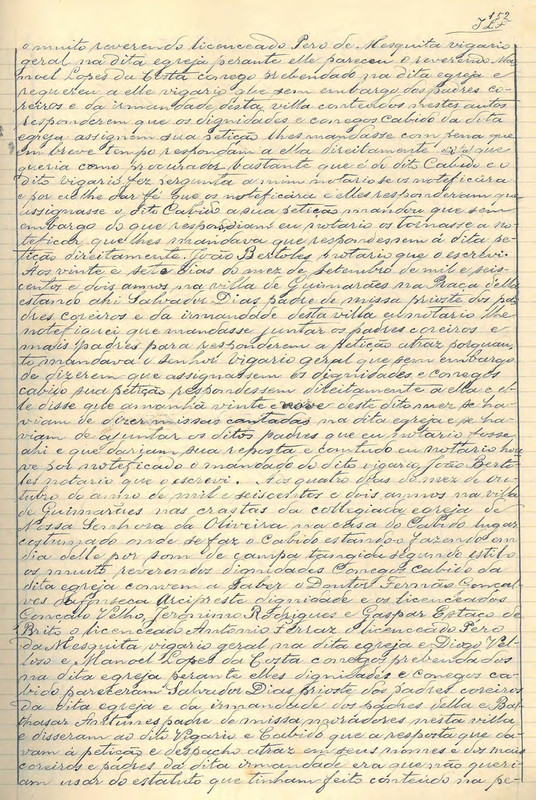 152
o muito reverendo licenceado Pero de Mesquita vigario
geral na dita egreja perante elle pareceu o reverendo Ma-
noel Lopes da Costa conego prebendado na dita egreja e
requereu a elle vigario que sem embargo dos padres co-
reiros e da irmandade desta villa conteudos nestes autos
responderem que os dignidades e conegos cabido da dita
egreja assignem sua petição lhes mandasse com pena que
em breve tempo respondam a ella direitamente que
queria como procurador bastante que é do dito Cabido e o
dito vigario fez pergunta a mim notario se os noteficára
e por eu lhe dar fé que os noteficára e elles responderam que
assignasse o dito Cabido a sua petição mandou que sem
embargo do que respondiam eu notario os tornasse a no-
teficar que lhes mandava que respondessem á dita pe-
tição direitamente. João Bertoles notario que o escrevi.
Aos vinte e sete dias do mez de Setembro de mil e seis-
centos e dois annos na villa de Guimarães na Praça della
estando ahi Salvador Dias padre de missa prioste dos pa-
dres coreiros e da irmandade desta villa eu notario lhe
notefiquei que mandasse juntar os padres coreiros e
mais padres para responderem a petição atraz porquan-
to mandava o senhor vigario geral que sem embargo
de dizerem que assignassem os dignidades e conegos
cabido sua petição respondessem direitamente a ella e el-
le disse que amanhã vinte e nove deste dito mez se ha-
viam de dizer missas cantadas na dita egreja e se ha-
viam de ajuntar os ditos padres que eu notario fosse
ahi e que dariam sua reposta e comtudo eu notario hou-
ve por noteficado o mandado do dito vigario João Berto-
les notario que o escrevi. Aos quatro dias do mez de ou-
tubro do anno de mil e seiscentos e dois annos na villa
de Guimarães nas crastas da collegiada egreja de
Nossa Senhora da Oliveira na casa do Cabido lugar
costumado onde se faz o Cabido estando-o fazendo em
dia delle por som de campa tangida segundo estilo
os muito reverendos dignidades Conegos cabido da
dita egreja convem a saber o Doutor Fernão Gonçal-
ves da Fonseca Arcipreste dignidade e os licenceados
Gonçalo Velho, Jeronimo Rodrigues e Gaspar Estaço de
Brito o licenceado Antonio Ferraz o licenceado Pero
da Mesquita vigario geral na dita egreja e Diogo Vel-
loso e Manoel Lopes da Costa conegos prebendados
na dita egreja perante elles dignidades e conegos ca-
bido pareceram Salvador Dias prioste dos padres coreiros
da dita egreja e da irmandade dos padres della e Bal-
thasar Antunes padre de missa moradores nesta villa
e disseram ao dito Vigario e Cabido que a resposta que da-
vam á petição e despacho atraz em seus nomes e dos mais
coreiros e padres da dita irmandade era que não queri-
am usar do estatuto que tinham feito conteudo na pe-